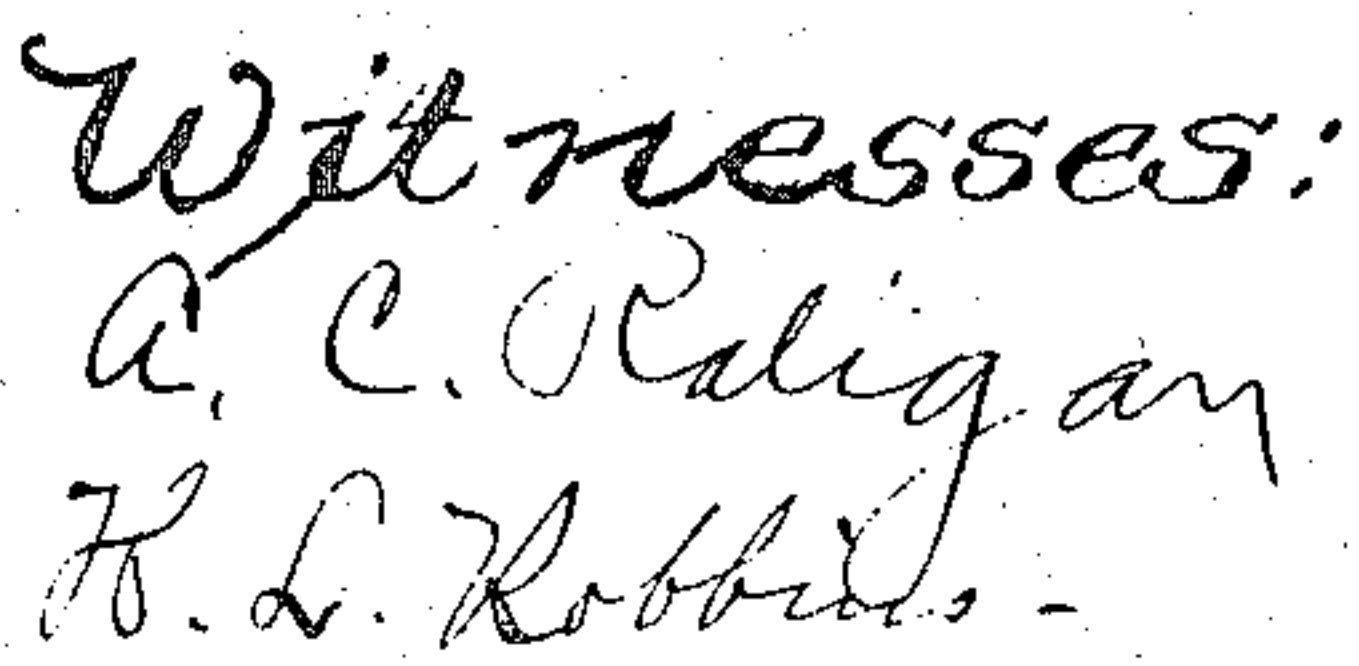 Witnesses:
A. C. Ratigan
H. L. Robbins